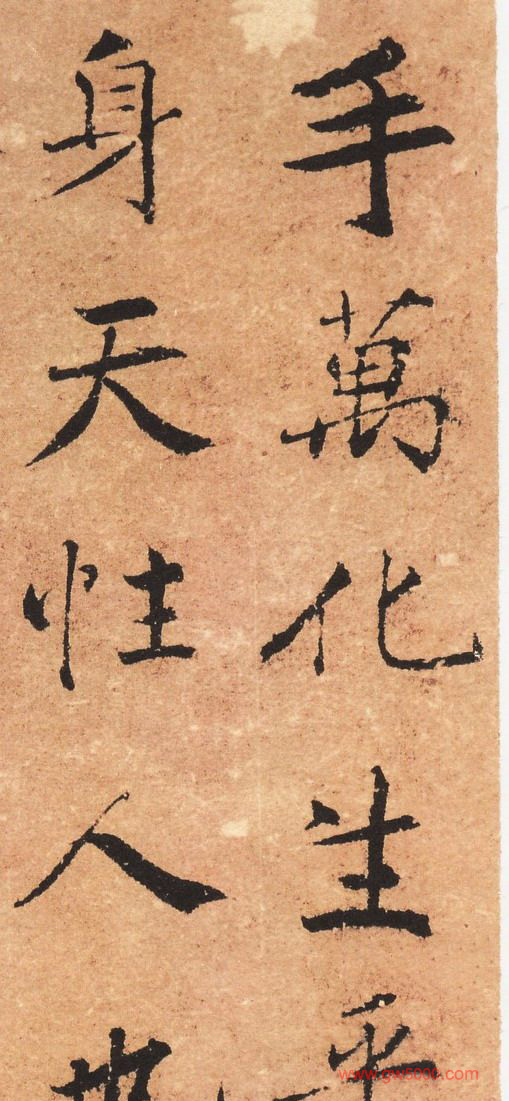 手萬化生乎
身天性人也
www.gw5000.com